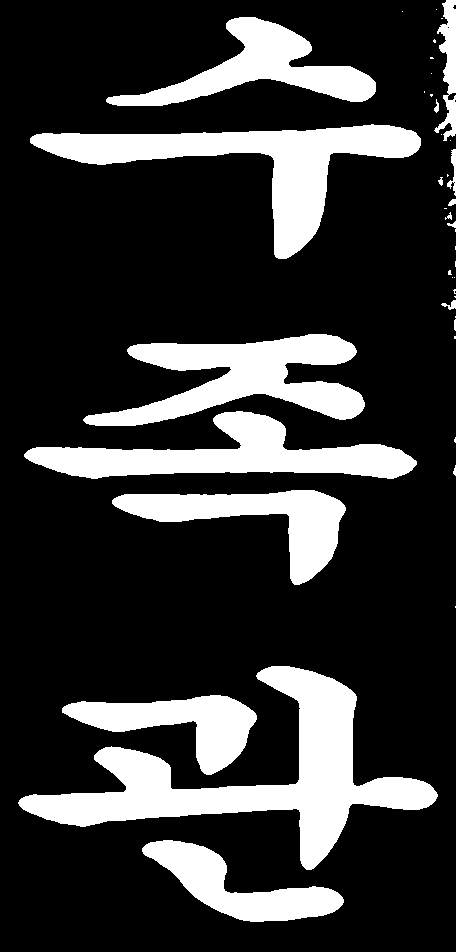 수족관